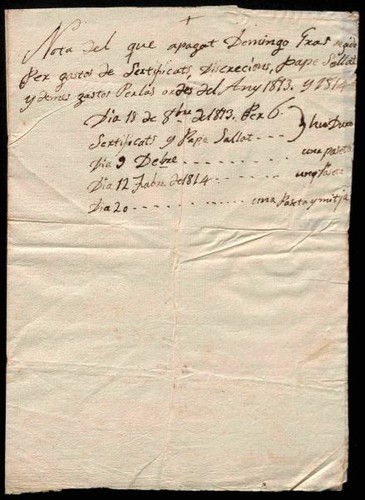 Nota del que apagat Domingo Gras
Per gastos de Sertificats, Discrecions, Pape Sallat
y demes gastos Perlas ordes del Any 1813. y 1814
Dia 18 de 8bre de 1813. Per 6.
Sertificats y Pape Sallat } hu Duro
Dia 9 Debre una paseta
Dia 12 Fabre. de 1814 una Paseta
Dia 20 una Paseta y mitja